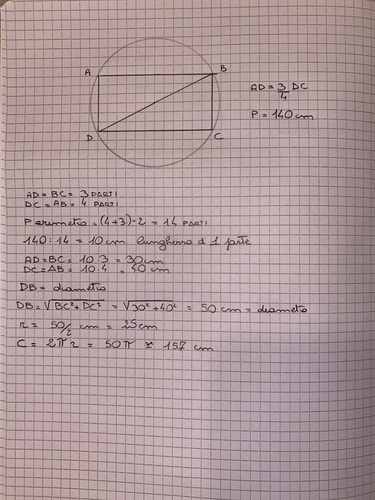 A
B
D
C
AD = 3/4 DC
P = 140 cm
AD = BC = 3 PARTI
DC = AB = 4 PARTI
Perimetro = (4+3)·2 = 14 PARTI
140 : 14 = 10 cm lunghezza d 1 parte
AD = BC = 10·3 = 30 cm
DC = AB = 10·4 = 40 cm
DB = diametro
DB = √BC²+DC² = √30²+40² = 50 cm = diametro
r = 50/2 cm = 25 cm
C = 2πr = 50π ≃ 157 cm